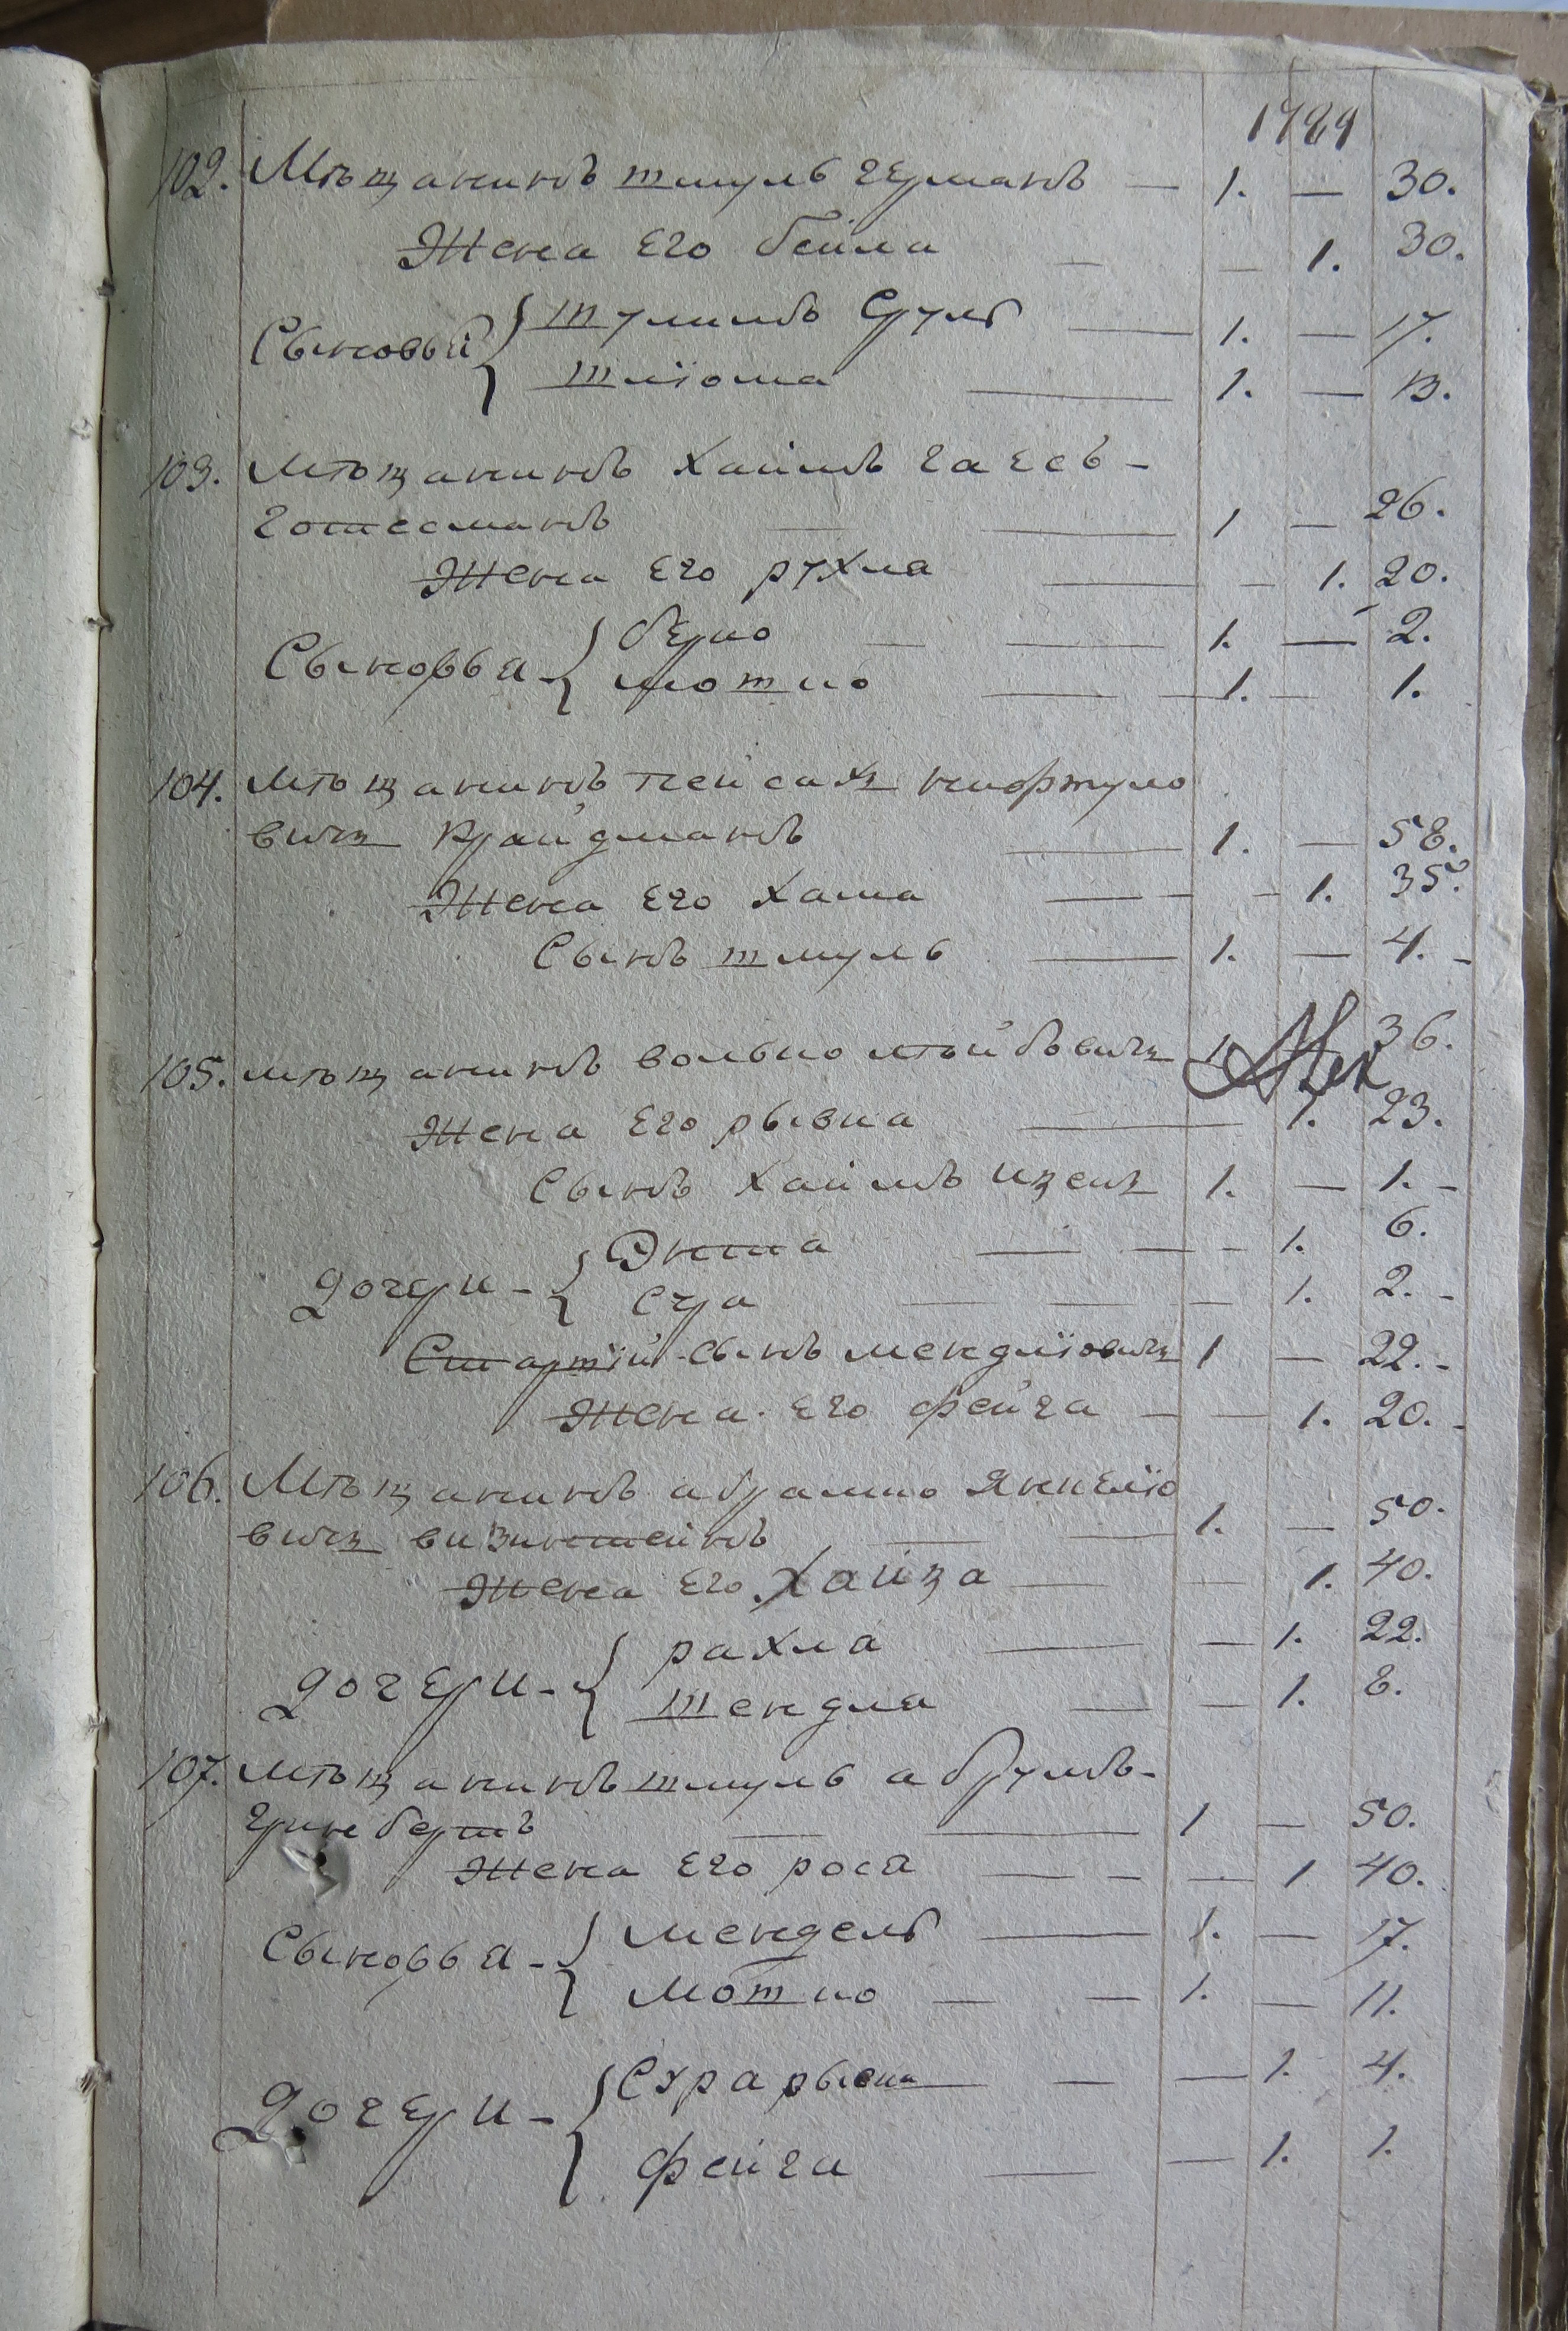 1789
102. Мѣщанинъ шмуль германъ — 1. — 30.
Жена Его бейла — — 1. 30.
Сыновья { шулимъ Сруль — 1. — 17.
шліома — 1. — 13.
103. Мѣщанинъ Хаимъ гаесъ-
готесманъ — 1 — 26.
Жена Его рухля — — 1. 20.
Сыновья { берко — 1. — 2.
мотио — 1. — 1.
104. Мѣщанинъ пейсахъ
вичъ крайдманъ — 1. — 58.
Жена Его Хама — — 1. 35.
Сынъ шмуль — 1. — 4. -
105. мѣщанинъ волько лейбовичъ 1 36.
Жена Его рывка — 1. 23.
Сынъ Хаимъ ицекъ 1. — 1. -
дочери - { Энта — — - 1. 6.
Сура — — — 1. 2. -
Старшій сынъ мендліовичъ 1 — 22. -
Жена Его фейга — — 1. 20. -
106. Мѣщанинъ абрамко Янкеліо
вичъ визинштейнъ — 1. — 50.
Жена Его Хайца — — 1. 40.
дочери - { рахля — — 1. 22.
шендля — — 1. 8.
107. мѣщанинъ шмуль абрумъ-
гринбергъ — — 1 — 50.
Жена Его рося — — — 1 40.
Сыновья - { мендель — 1. — 17.
мотио — — 1. — 11.
Дочери - { Сура рывка — — 1. 4.
фейга — — 1. 1.